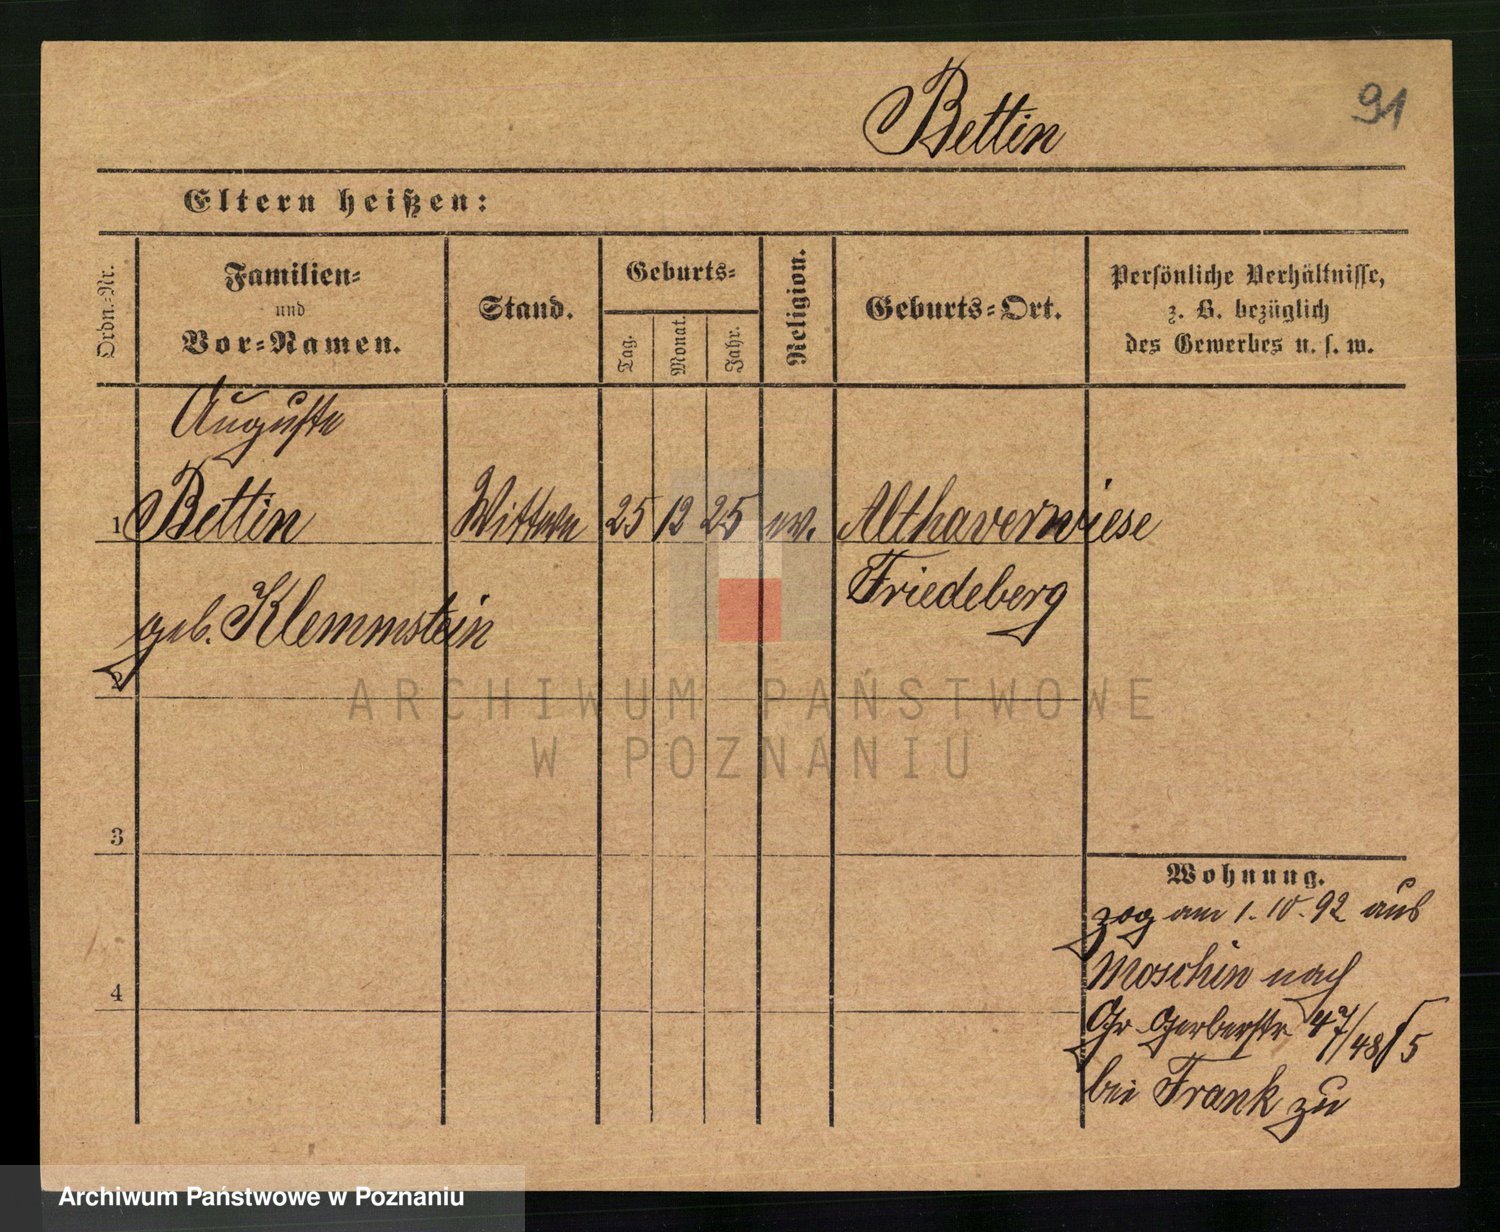 Bettin
91
Eltern heißen:
Ordn.-Nr.
Familien-
und
Vor-Namen.
Stand.
Geburts-
Tag.
Monat.
Jahr.
Religion.
Geburts-Ort.
Persönliche Verhältnisse,
z. B. bezüglich
des Gewerbes u. s. w.
Auguste
1 Bettin Wittwe 25 12 25 ev. Althaverwiese
Friedeberg
geb. Klemmstein
2
ARCHIWUM PAŃSTWOWE
W POZNANIU
3
Wohnung.
zog am 1.10.92 aus
Moschin nach
4
Gr Gerberstr 47/48 5
bei Frank zu
Archiwum Państwowe w Poznaniu